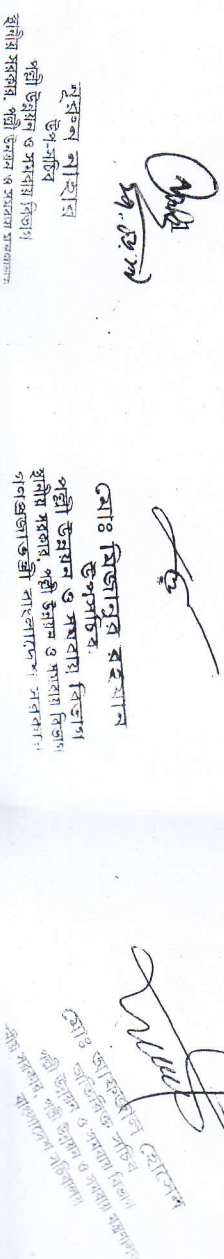 নুরুন নাহার
উপ-সচিব
পল্লী উন্নয়ন ও সমবায় বিভাগ
স্থানীয় সরকার, পল্লী উন্নয়ন ও সমবায়
মোঃ মিজানুর রহমান
উপসচিব
পল্লী উন্নয়ন ও সমবায় বিভাগ
স্থানীয় সরকার, পল্লী উন্নয়ন ও সমবায় বিভাগ
গণপ্রজাতন্ত্রী বাংলাদেশ সরকার
মোঃ আফজাল হোসেন
অতিরিক্ত সচিব
পল্লী উন্নয়ন ও সমবায় বিভাগ
সরকার, পল্লী উন্নয়ন ও সমবায় মন্ত্রণালয়
বাংলাদেশ সচিবালয়